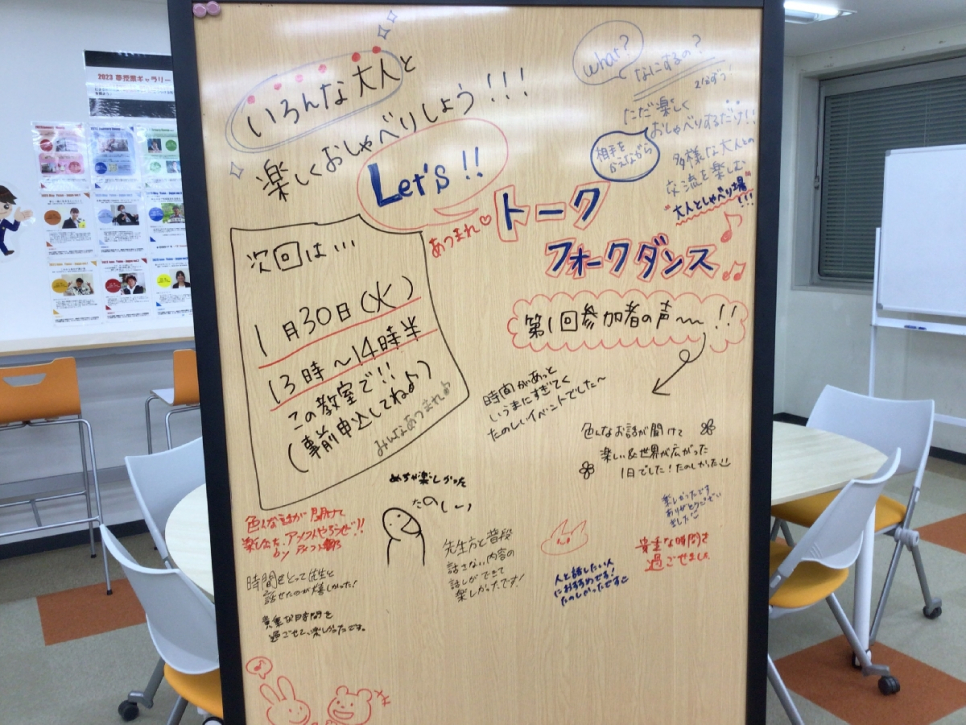 2023 卒授業ギャラリー
いろんな大人と
楽しくおしゃべりしよう!!!
what?
なにするの?
ただ楽しく
おしゃべりするだけ!!
多様な大人との
交流を楽しむ
"大人としゃべり場"!!!
Let's!!
あつまれ♡
トーク
フォークダンス
次回は…
1月30日(火)
13時〜14時半
この教室で!!
(事前申込してねよ)
みんなあつまれ♪
第1回参加者の声〜〜!!
時間があっと
いうまにすぎてく
たのしいイベントでした〜
色んなお話が聞けて
楽しい&世界が広がった
1日でした!たのしかった
めちゃ楽しかった
たのしー
色んな話が聞けて
先生方と普段
話さない内容の
話しができて
楽しかったです!
人と話したい人
におすすめです!
たのしかったです
楽しかったです
ありがとうござい
ました
貴重な時間を
過ごせました
時間をとって先生と
話せたのが嬉しかった!
貴重な時間を
過ごせて、楽しかったです。